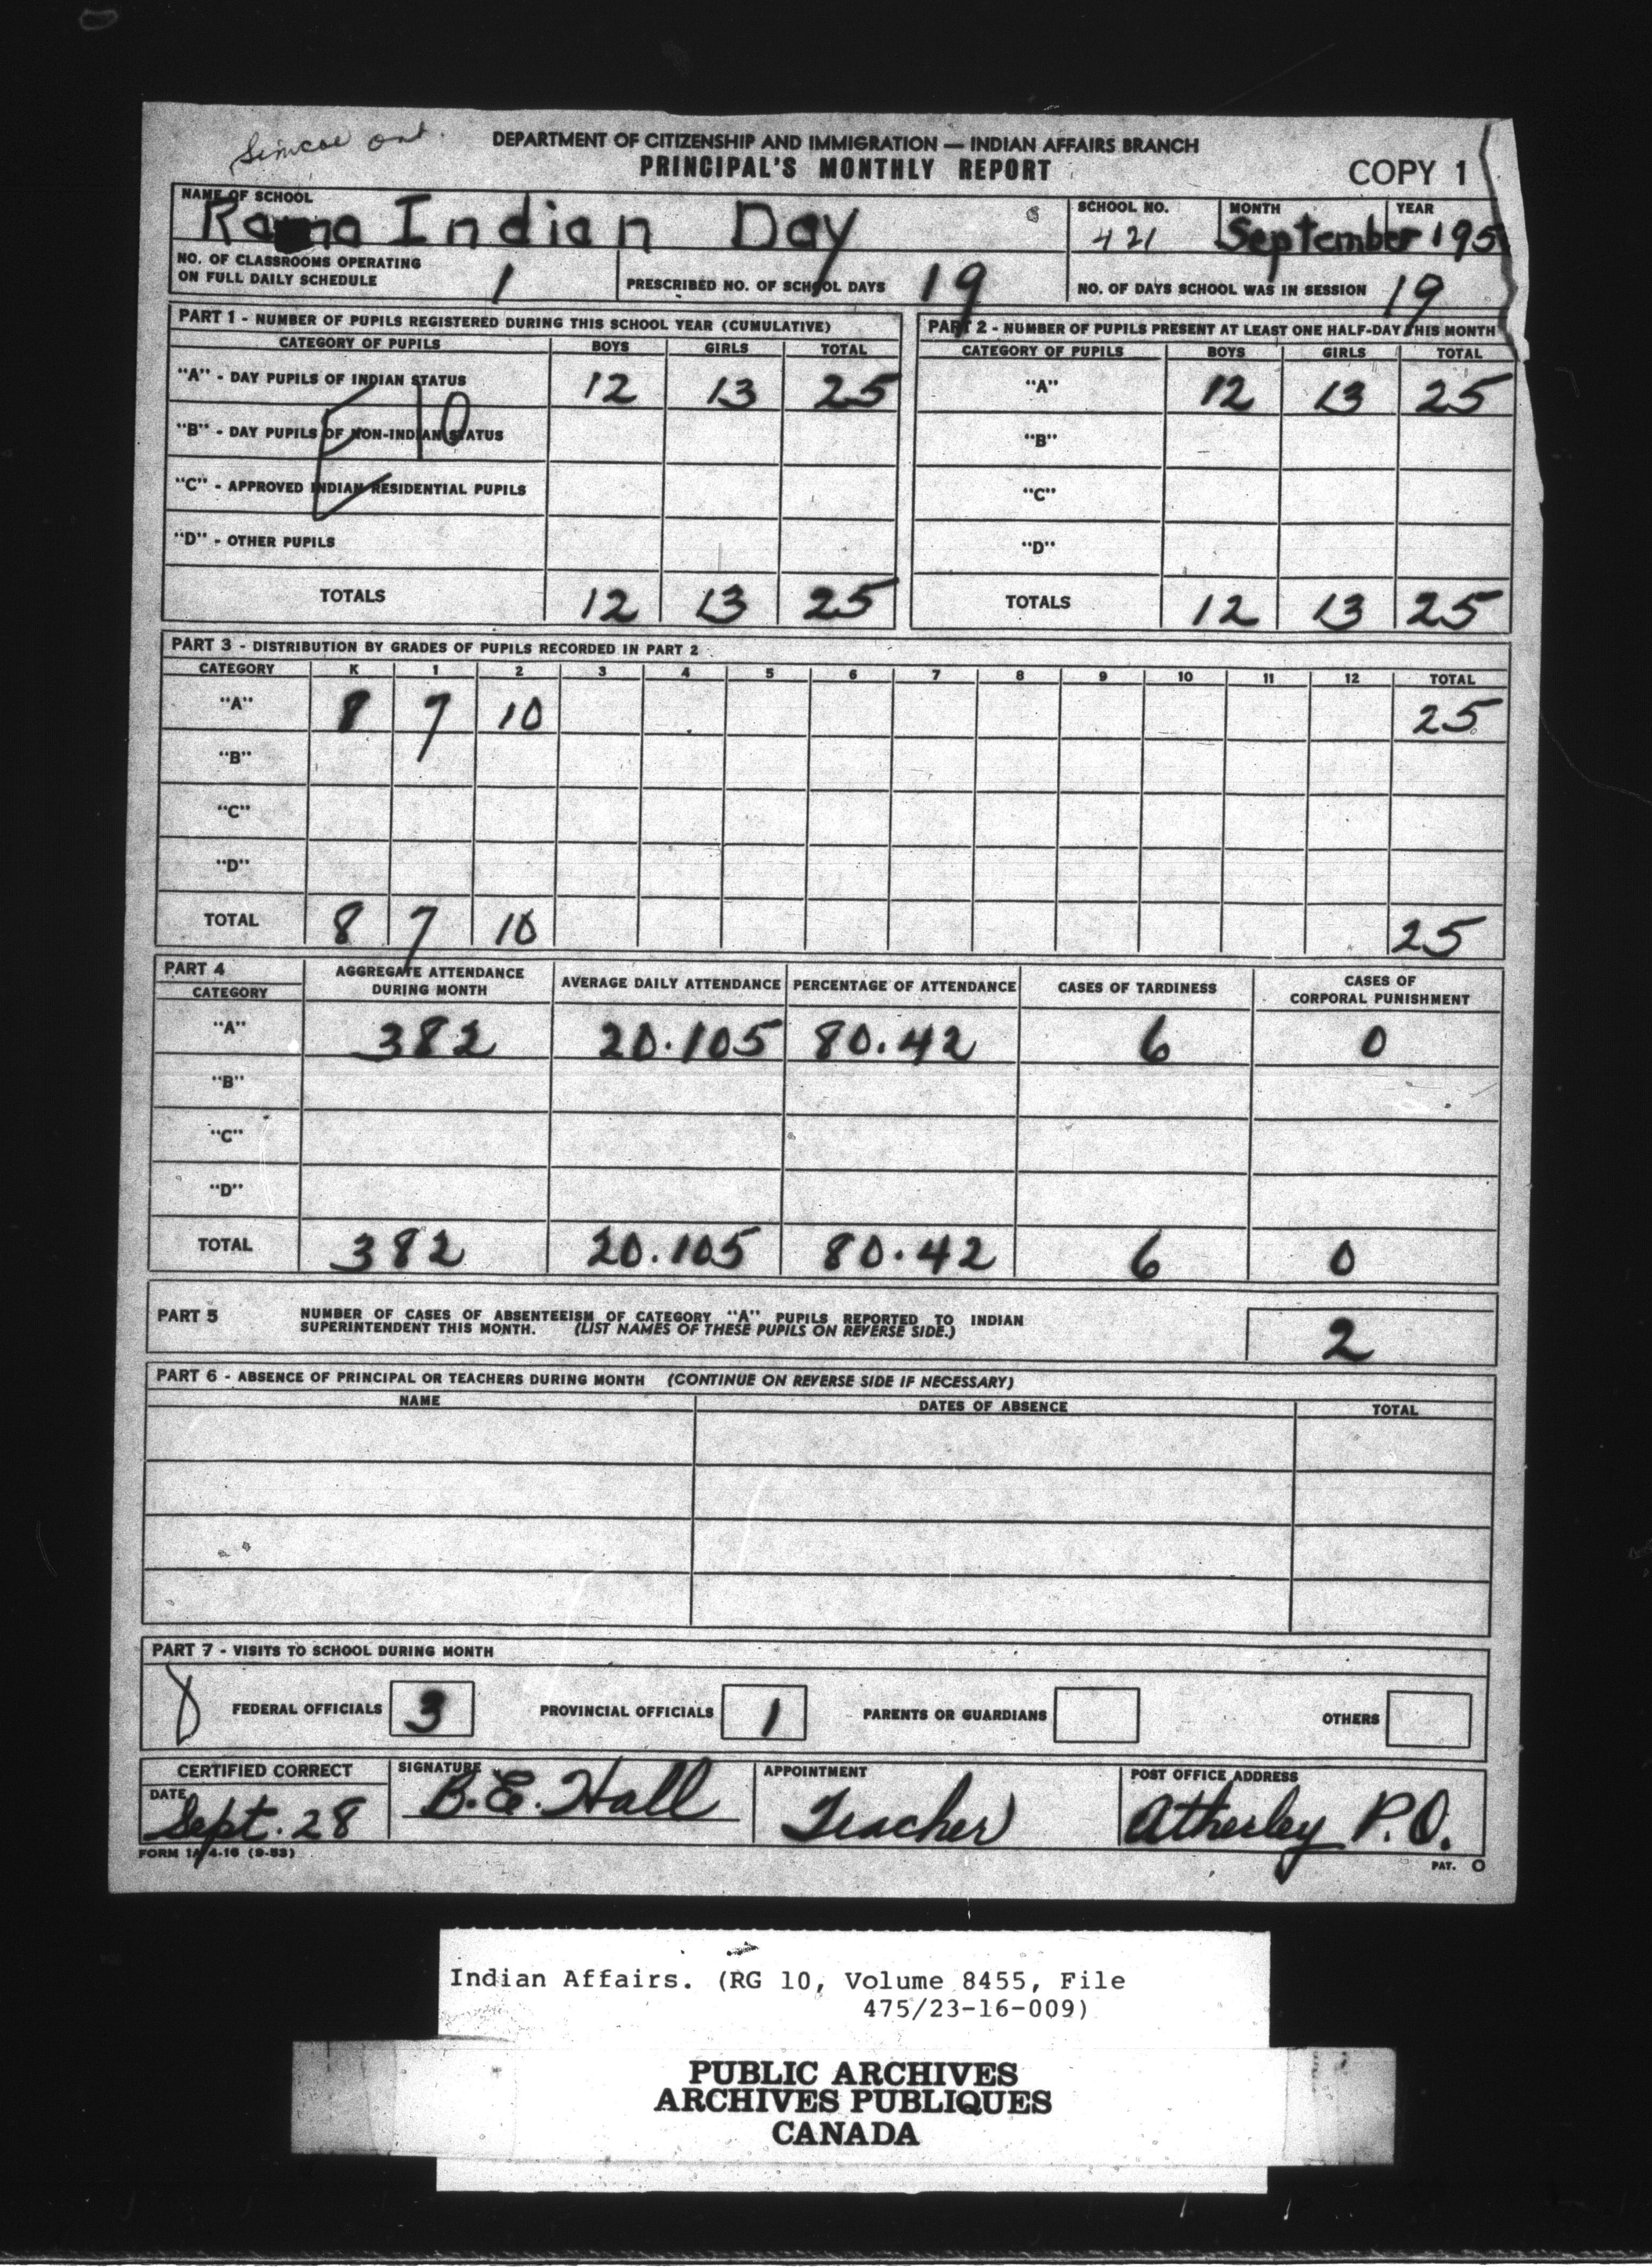 Simcoe Ont.
DEPARTMENT OF CITIZENSHIP AND IMMIGRATION — INDIAN AFFAIRS BRANCH
PRINCIPAL'S MONTHLY REPORT
COPY 1
NAME OF SCHOOL
Rama Indian Day
SCHOOL NO.
421
MONTH
September
YEAR
195
NO. OF CLASSROOMS OPERATING
ON FULL DAILY SCHEDULE 1
PRESCRIBED NO. OF SCHOOL DAYS 19
NO. OF DAYS SCHOOL WAS IN SESSION 19
PART 1 - NUMBER OF PUPILS REGISTERED DURING THIS SCHOOL YEAR (CUMULATIVE)
CATEGORY OF PUPILS BOYS GIRLS TOTAL
"A" - DAY PUPILS OF INDIAN STATUS 12 13 25
"B" - DAY PUPILS OF NON-INDIAN STATUS
"C" - APPROVED INDIAN RESIDENTIAL PUPILS
"D" - OTHER PUPILS
TOTALS 12 13 25
PART 2 - NUMBER OF PUPILS PRESENT AT LEAST ONE HALF-DAY THIS MONTH
CATEGORY OF PUPILS BOYS GIRLS TOTAL
"A" 12 13 25
"B"
"C"
"D"
TOTALS 12 13 25
PART 3 - DISTRIBUTION BY GRADES OF PUPILS RECORDED IN PART 2
CATEGORY K 1 2 3 4 5 6 7 8 9 10 11 12 TOTAL
"A" 8 7 10 25
"B"
"C"
"D"
TOTAL 8 7 10 25
PART 4
CATEGORY
AGGREGATE ATTENDANCE
DURING MONTH
AVERAGE DAILY ATTENDANCE
PERCENTAGE OF ATTENDANCE
CASES OF TARDINESS
CASES OF
CORPORAL PUNISHMENT
"A" 382 20.105 80.42 6 0
"B"
"C"
"D"
TOTAL 382 20.105 80.42 6 0
PART 5 NUMBER OF CASES OF ABSENTEEISM OF CATEGORY "A" PUPILS REPORTED TO INDIAN
SUPERINTENDENT THIS MONTH. (LIST NAMES OF THESE PUPILS ON REVERSE SIDE.)
2
PART 6 - ABSENCE OF PRINCIPAL OR TEACHERS DURING MONTH (CONTINUE ON REVERSE SIDE IF NECESSARY)
NAME DATES OF ABSENCE TOTAL
PART 7 - VISITS TO SCHOOL DURING MONTH
FEDERAL OFFICIALS 3 PROVINCIAL OFFICIALS 1 PARENTS OR GUARDIANS OTHERS
CERTIFIED CORRECT
DATE
Sept. 28
SIGNATURE
B.E. Hall
APPOINTMENT
Teacher
POST OFFICE ADDRESS
Atherley P.O.
FORM 1A/4-16 (9-53)
PAT. O
Indian Affairs. (RG 10, Volume 8455, File
475/23-16-009)
PUBLIC ARCHIVES
ARCHIVES PUBLIQUES
CANADA